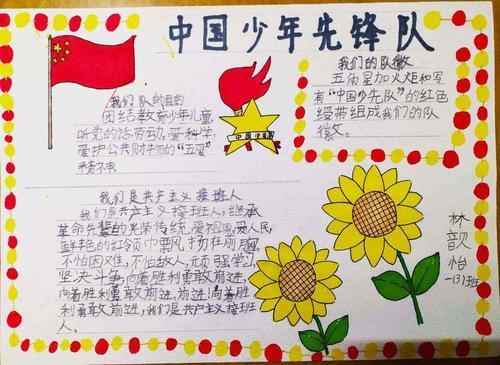 中国少年先锋队
我们队的目的
团结教育少年儿童
听党的话爱劳动,爱科学,
爱护公共财物的"五爱"
中国少先
我们的队徽
五角星加火炬和写
有"中国少先队"的红色
绶带组成我们的队
徽。
我们是共产主义接班人
我们是共产主义接班人,继承
革命先辈的光荣传统,爱祖国,爱人民,
鲜艳的红领巾飘扬在前胸
不怕困难,不怕敌人,顽强学习
坚决斗争,向着胜利勇敢前进,
向着胜利勇敢前进,前进!向着胜
利勇敢前进,我们是共产主义接班
人。
林
歆
怡
一(3)班